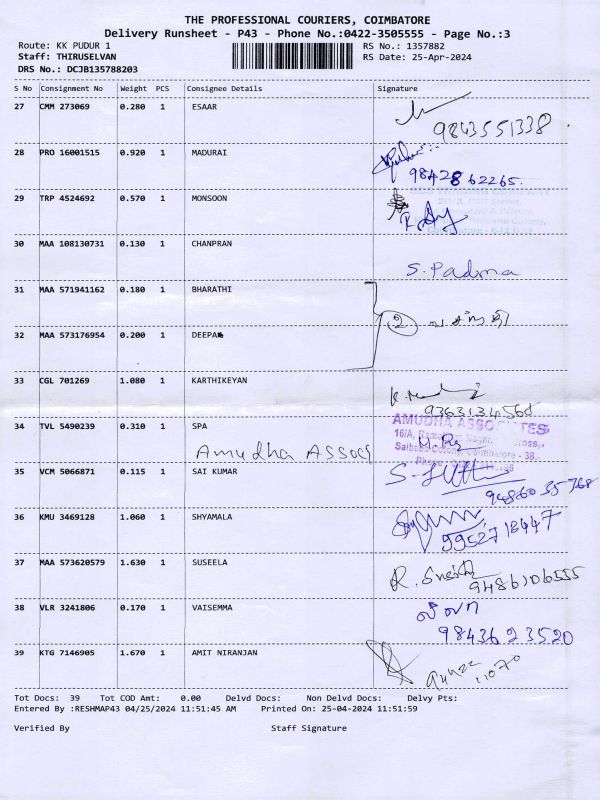 THE PROFESSIONAL COURIERS, COIMBATORE
Delivery Runsheet - P43 - Phone No.:0422-3505555 - Page No.:3
Route: KK PUDUR 1 RS No.: 1357882
Staff: THIRUSELVAN RS Date: 25-Apr-2024
DRS No.: DCJB135788203
S No Consignment No Weight PCS Consignee Details Signature
27 CMM 273069 0.280 1 ESAAR
9843551338
28 PRO 16001515 0.920 1 MADURAI
98428 62265.
29 TRP 4524692 0.570 1 MONSOON
30 MAA 108130731 0.130 1 CHANPRAN
S. Padma
31 MAA 571941162 0.180 1 BHARATHI
2
32 MAA 573176954 0.200 1 DEEPAK
33 CGL 701269 1.080 1 KARTHIKEYAN
9363134568
34 TVL 5490239 0.310 1 SPA
AMUDHA ASSOCIATES
Amudha Assocs
Coimbatore - 38.
35 VCM 5066871 0.115 1 SAI KUMAR
94860 35768
36 KMU 3469128 1.060 1 SHYAMALA
99527 18447
37 MAA 573620579 1.630 1 SUSEELA
9486106555
38 VLR 3241806 0.170 1 VAISEMMA
98436 23520
39 KTG 7146905 1.670 1 AMIT NIRANJAN
Tot Docs: 39 Tot COD Amt: 0.00 Delvd Docs: Non Delvd Docs: Delvy Pts:
Entered By :RESHMAP43 04/25/2024 11:51:45 AM Printed On: 25-04-2024 11:51:59
Verified By Staff Signature